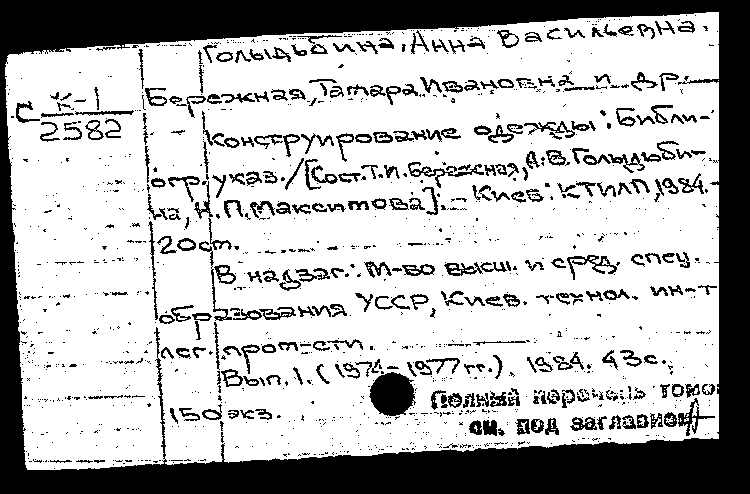 Голыдьбина, Анна Васильевна.
С К-1
2582
Бережная, Тамара Ивановна и др.
Конструирование одежды: Библи-
огр. указ. / [Сост. Т.И. Бережная, А.В. Голыдьби-
на, Н.П. Максимова]. - Киев: КТИЛП, 1984. -
20 см.
В надзаг.: М-во высш. и сред. спец.
образования УССР, Киев. технол. ин-т
лег. пром-сти.
Вып. 1. (1974-1977 гг.). 1984. 43 с.
150 экз.
Полный перечень томо
см. под заглавием